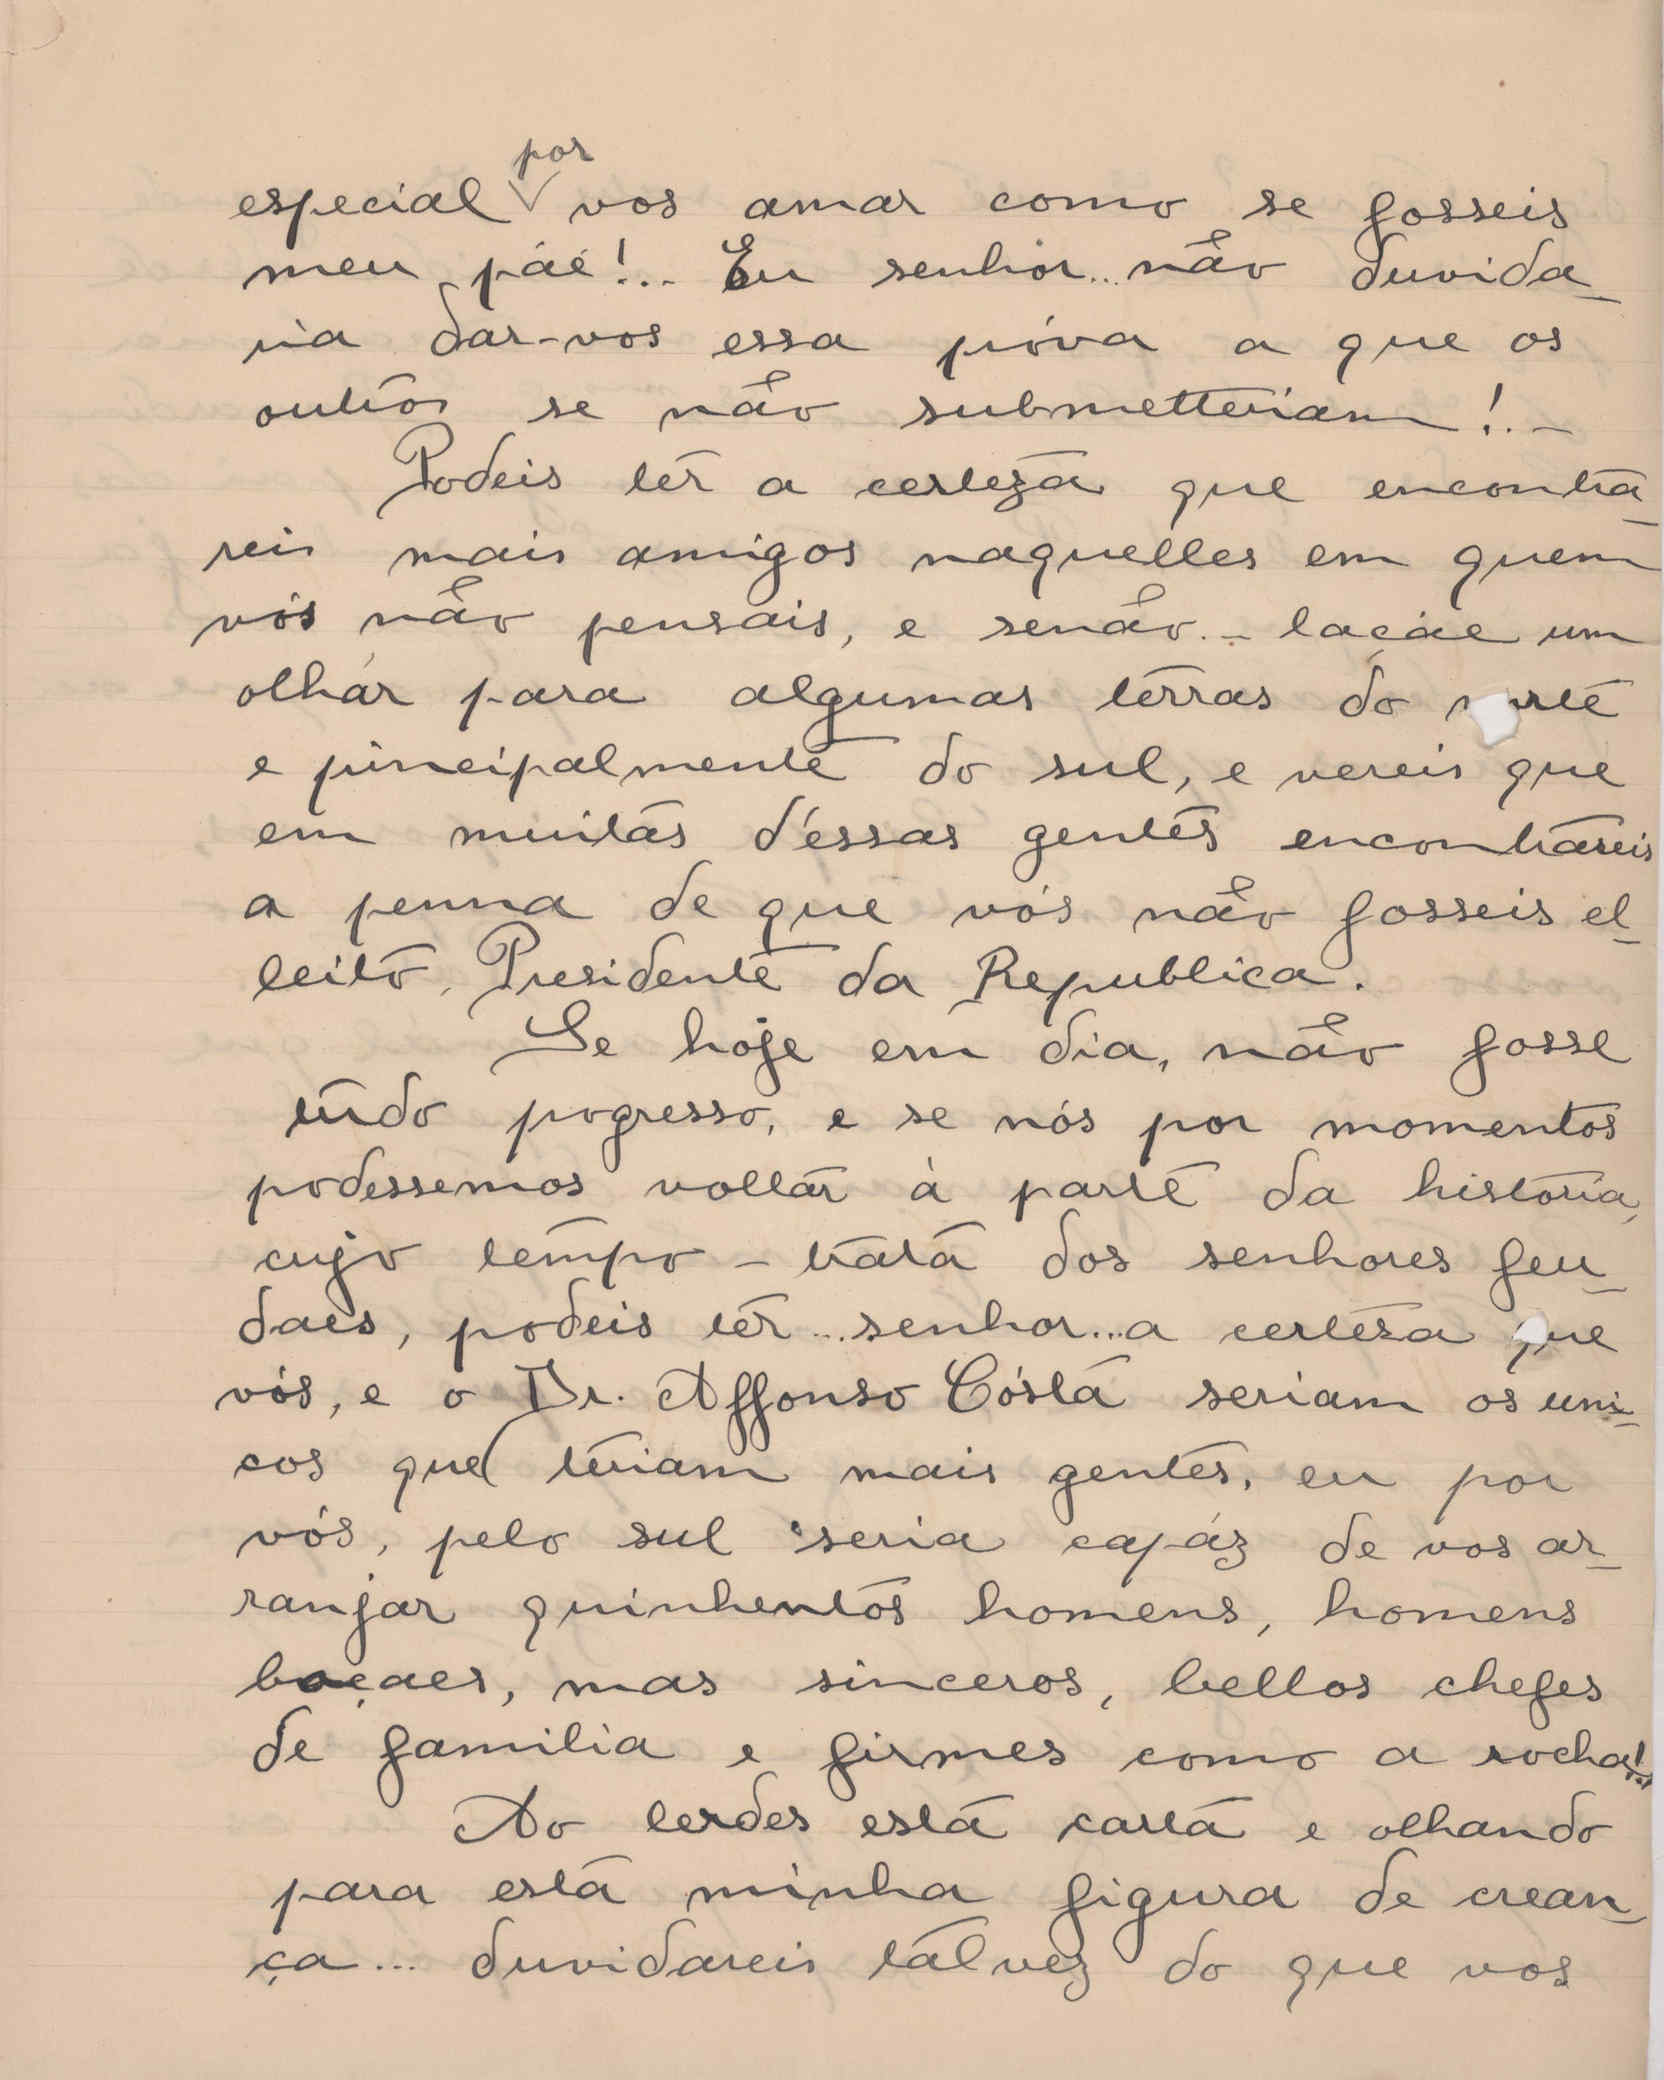 especial por vos amar como se fosseis
meu páe!... Eu senhor... não duvida-
ria dar-vos essa próva a que os
outros se não submetteriam!...
Podeis ter a certeza que encontra-
reis mais amigos naquelles em quem
vós não pensais, e senão... laçáe um
olhár para algumas terras do norte
e principalmente do sul, e vereis que
em muitas d'éssas gentes encontrareis
a penna de que vós não fosseis el-
leito, Presidente da Republica.
Se hoje em dia, não fosse
tudo pogresso, e se nós por momentos
podessemos voltar à parte da historia,
cujo tempo - trata dos senhores feu-
daes, podeis ter... senhor... a certeza que
vós, e o Dr. Affonso Cósta seriam os uni-
cos que teriam mais gentes, eu por
vós, pelo sul seria capáz de vos ar-
ranjar quinhentos homens, homens
boçaes, mas sinceros, bellos chefes
de familia e firmes como a rocha!...
Ao lerdes esta carta e olhando
para esta minha figura de crean-
ça... duvidareis talvez do que vos